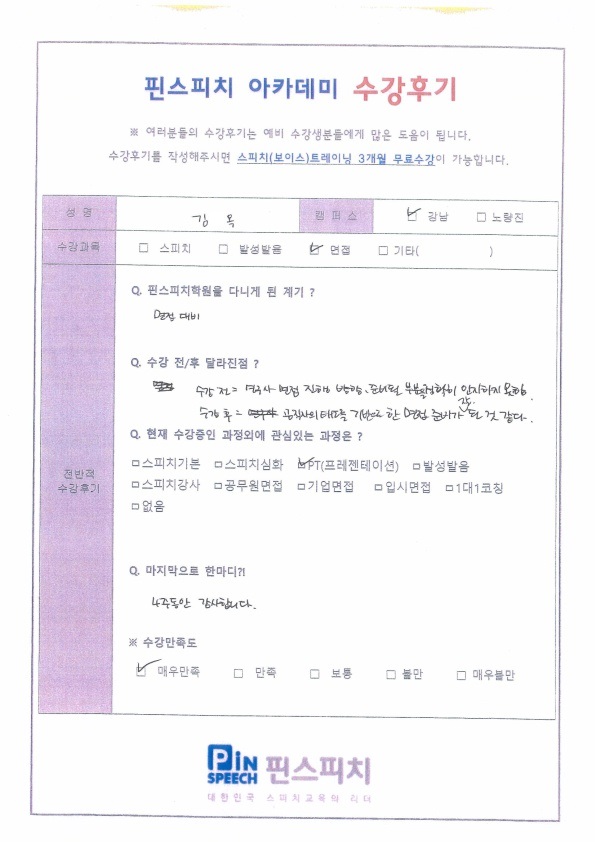 핀스피치 아카데미 수강후기
※ 여러분들의 수강후기는 예비 수강생분들에게 많은 도움이 됩니다.
수강후기를 작성해주시면 스피치(보이스)트레이닝 3개월 무료수강이 가능합니다.
성 명 김 옥 캠 퍼 스 ☑ 강남 □ 노량진
수강과목 □ 스피치 □ 발성발음 ☑ 면접 □ 기타( )
전반적
수강후기
Q. 핀스피치학원을 다니게 된 계기 ?
면접 대비
Q. 수강 전/후 달라진점 ?
수강 전 = 면접 진행 방향, 준비할 부분 인지하지 못함.
수강 후 = 공직사의 태도를 기반으로 한 면접 준비가 된 것 같다.
Q. 현재 수강중인 과정외에 관심있는 과정은 ?
□스피치기본 □스피치심화 ☑PT(프레젠테이션) □발성발음
□스피치강사 □공무원면접 □기업면접 □입시면접 □1대1코칭
□없음
Q. 마지막으로 한마디?!
4주동안 감사합니다.
※ 수강만족도
☑ 매우만족 □ 만족 □ 보통 □ 불만 □ 매우불만
PiN
SPEECH 핀스피치
대한민국 스피치교육의 리더